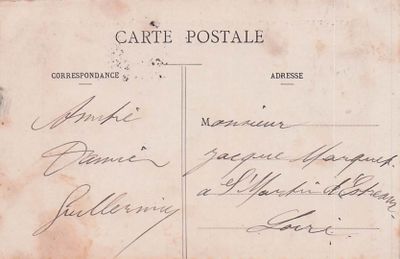 CARTE POSTALE
CORRESPONDANCE
Amitié
Damien
Guillermin
ADRESSE
Monsieur
Jacque Marquet
a St Martin d'Estreaux
Loire